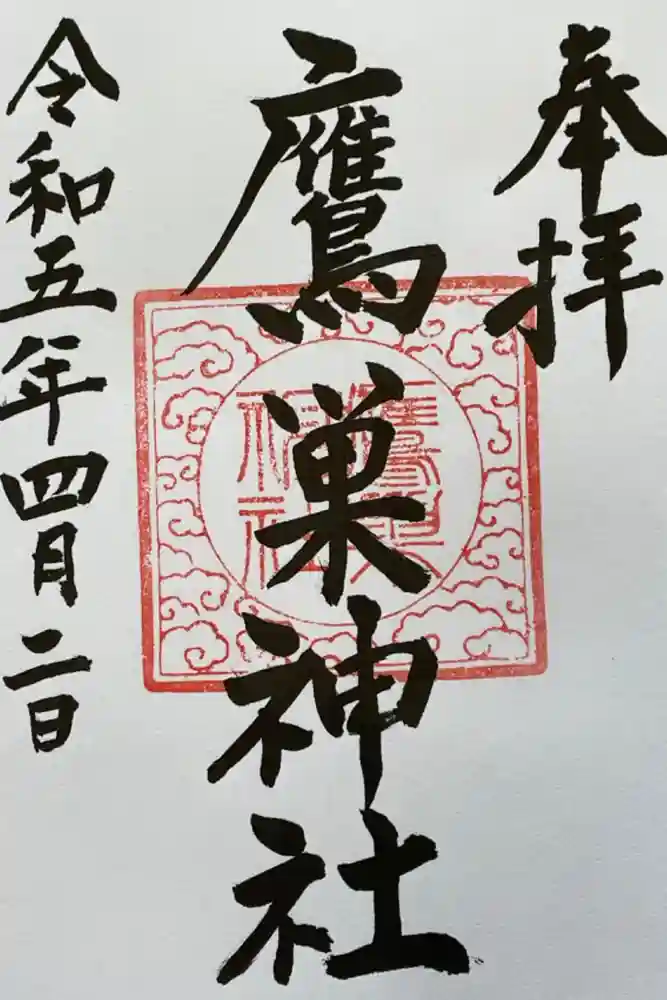 奉拝
鷹巣神社
鷹巣
神社
令和五年四月二日